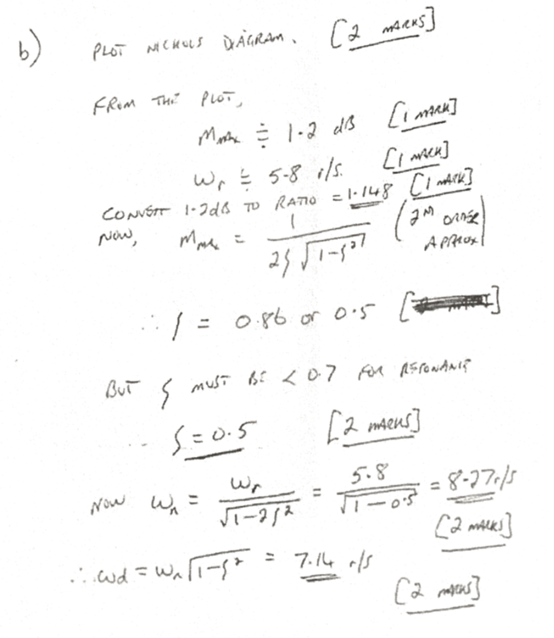 b) PLOT NICHOLS DIAGRAM. [2 MARKS]
FROM THE PLOT,
Mmax ≑ 1.2 dB [1 MARK]
ωr ≑ 5.8 r/s. [1 MARK]
CONVERT 1.2dB TO RATIO = 1.148 [1 MARK]
NOW, Mmax = 1 / 2ζ√1-ζ² (2ND ORDER APPROX)
∴ ζ = 0.86 or 0.5 [
BUT ζ MUST BE < 0.7 FOR RESONANCE
∴ ζ = 0.5 [2 MARKS]
NOW ωn = ωr / √1-2ζ² = 5.8 / √1-0.5 = 8.27 r/s
[2 MARKS]
∴ ωd = ωn√1-ζ² = 7.14 r/s
[2 MARKS]